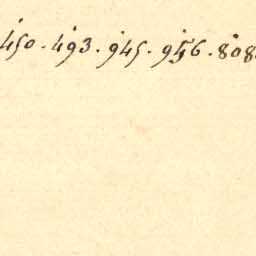 450. 493. 945. 956. 808